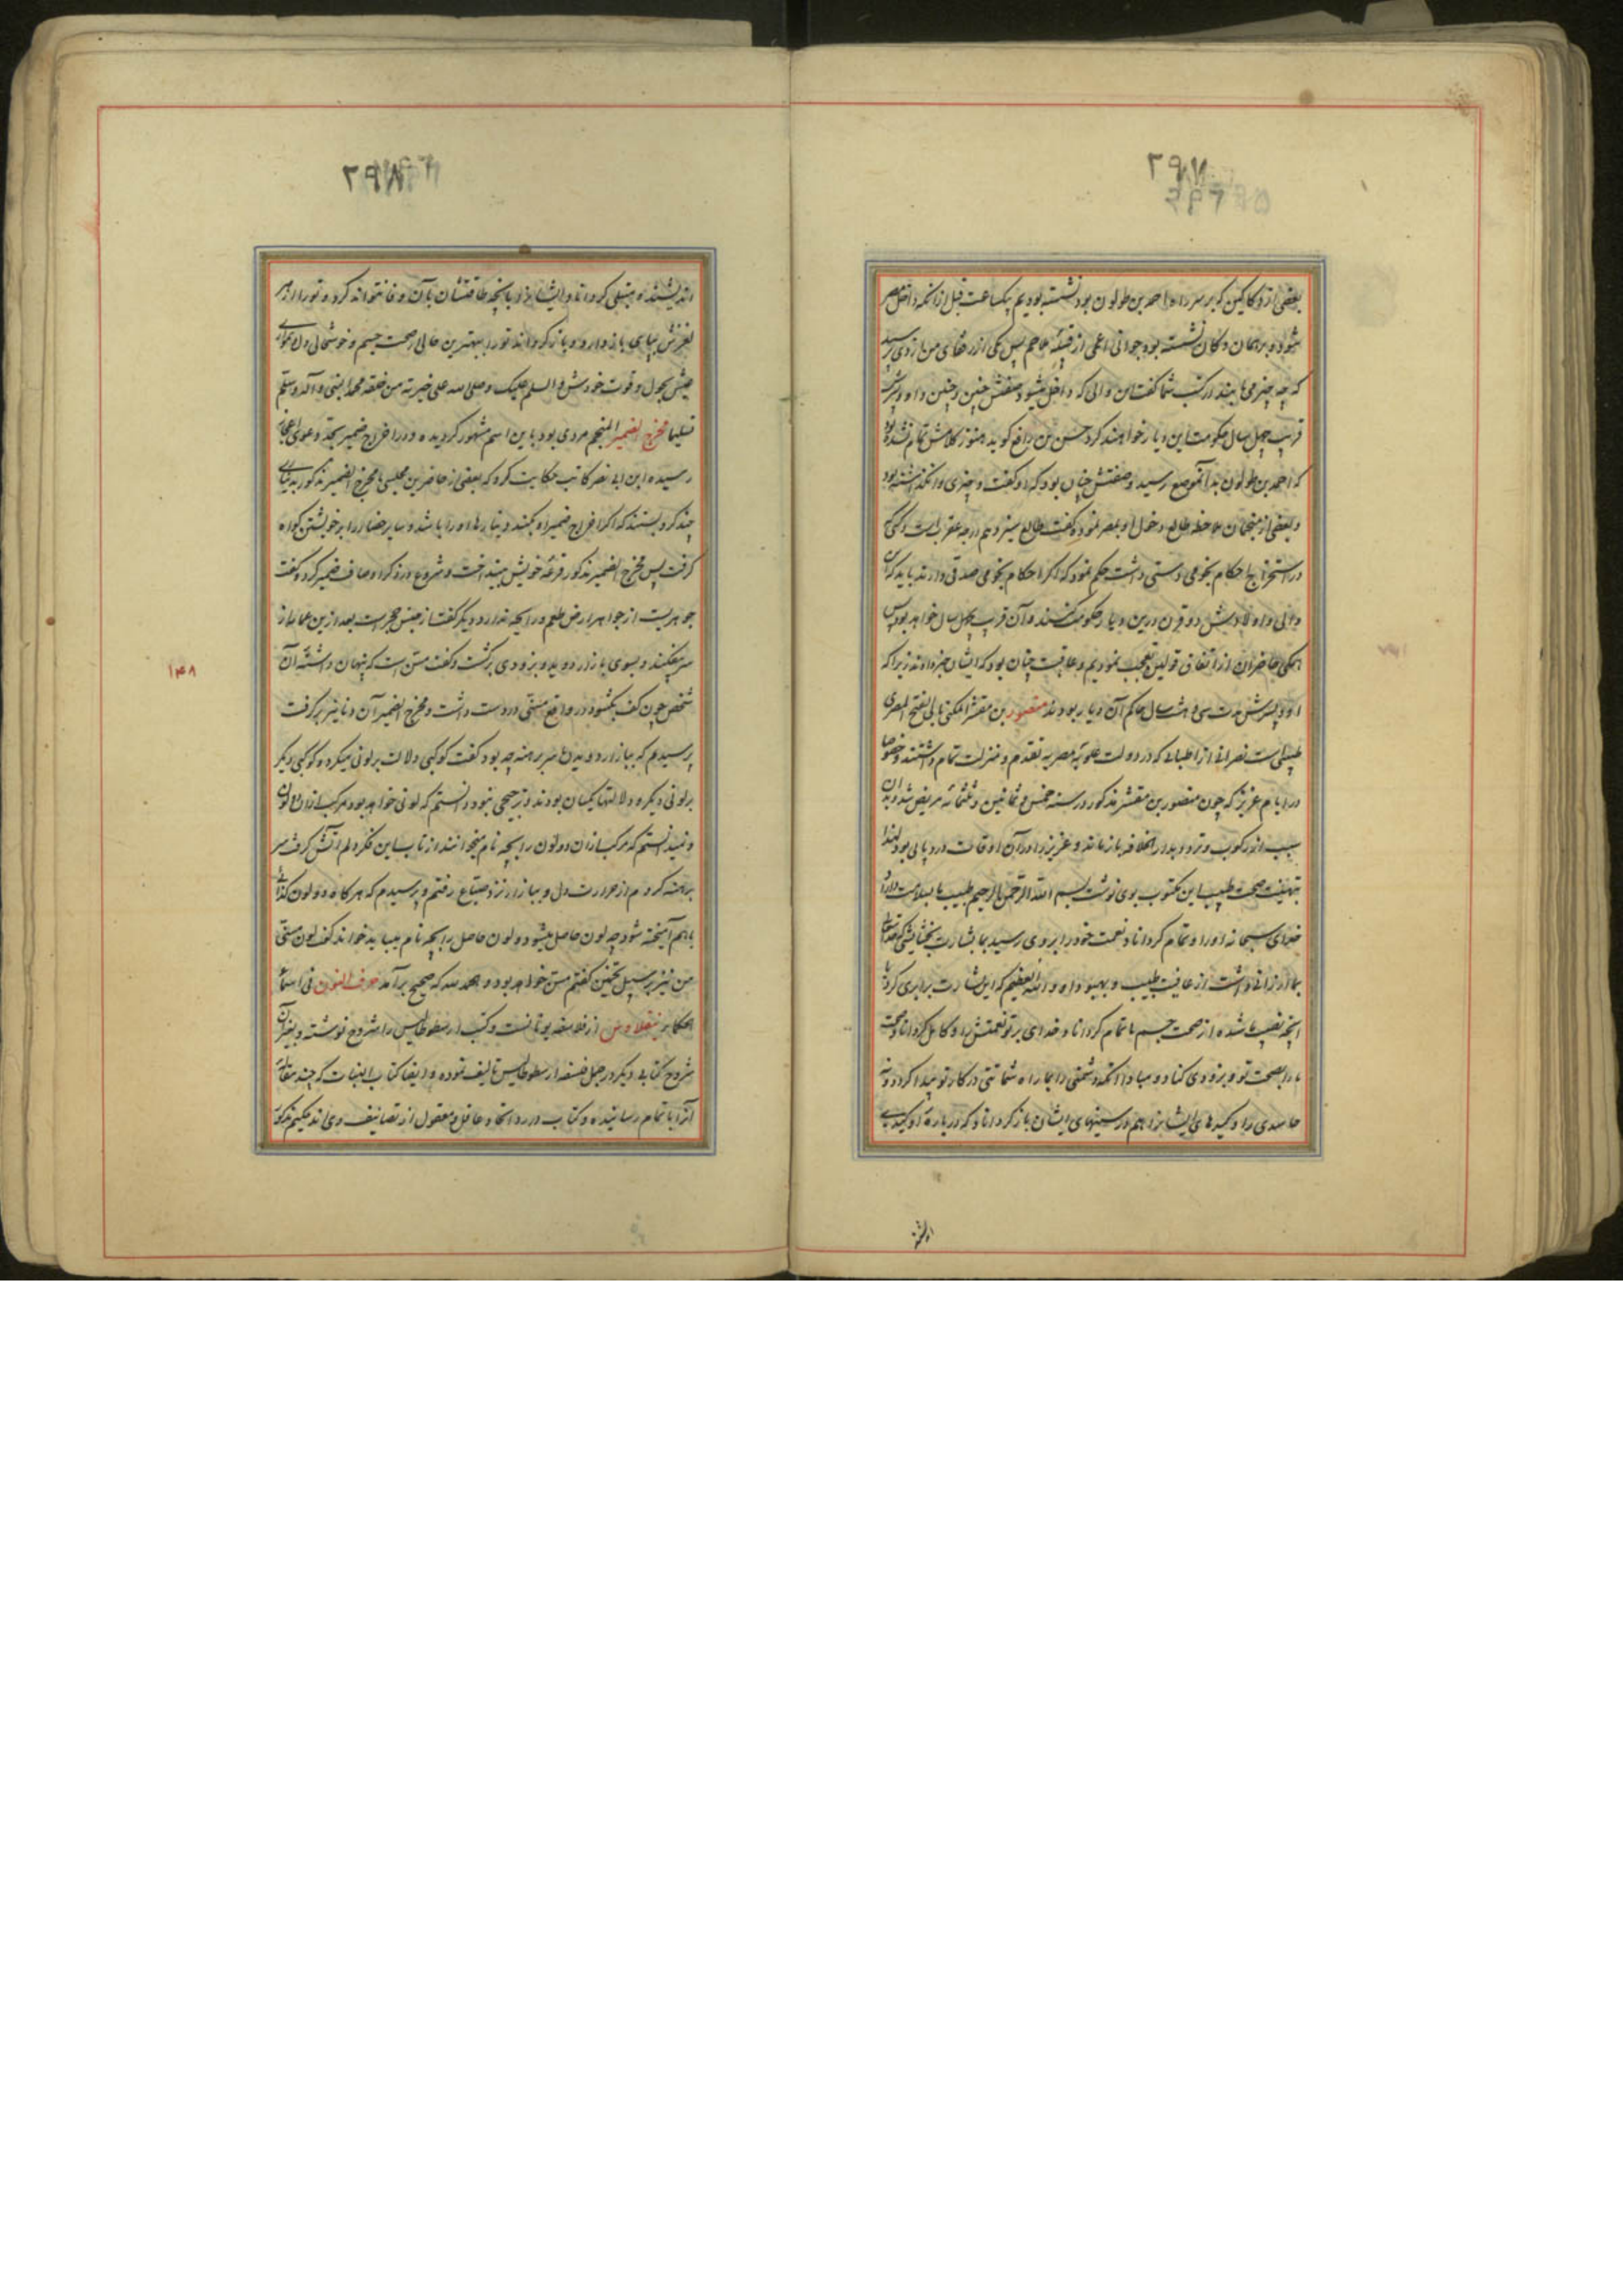 بعضی از دکاکین که بر سر راه احمد بن طولون بود نشسته بودیم یکساعت قبل از انکه داخل مصر
شود و بر همان دکان نشسته بود جوانی اعمی از قبیله ملاحم پس یکی از رفقای من از وی پرسید
که چه چیز می یابید در کتب شما گفت این والی که داخل میشود صفتش چنین و چنین و او و پسرش
قریب چهل سال حکومت این دیار خواهند کرد حسن بن رافع گوید هنوز کلامش تمام نشده بود
که احمد بن طولون بدانموضع رسید و صفتش چنان بود که او گفت و چیزی وانگذاشته بود
و بعضی از منجمان ملاحظه طالع دخول او بمصر نموده گفت طالع سیزدهم درجه عقرب است و یکی
در استخراج احکام نجومی دستی داشت حکم نمود که اگر احکام نجومی صدقی دارند باید که این
والی و اولادش دو قرن درین دیار حکومت کنند و آن قریب چهل سال خواهد بود پس
همگی حاضران از اتفاق قولین تعجب نمودیم و عاقبت چنان بود که ایشان خبر دادند زیرا که
او و پسرش مدت سی و هشت سال حاکم آن دیار بودند منصور بن مقشر المکنی بابی الفتح المصری
طبیبی است نصرانی از اطبائی که در دولت علویه مصریه تقدم و منزلت تمام داشتند و خصوصا
در ایام عزیز که چون منصور بن مقشر مذکور در سنه خمس و ثمانین و ثلثمائه مریض شد و بدان
سبب از رکوب و تردد بدار الخلافه باز ماند و عزیز را در آن اوقات درد پایی بود لهذا
تهنیت صحت طبیب این مکتوب بوی نوشت بسم الله الرحمن الرحیم طبیب ما بسلامت دارد
خدای سبحانه او را و تمام گرداناد نعمت خود را بر وی رسید بما بشارت بخشایشی که خدایتعالی
بما ارزانی داشت از عافیت طبیب و بهبود او و الله العظیم که این بشارت برابری کرد با
آنچه نصیب ما شده از صحت جسم ما تمام گرداناد خدای بر تو نعمتش را و کامل گرداناد صحت
ما را بصحت تو و بزودی کناد و مبادا انکه دشمنی را بما راه شماتتی در کار تو پیدا کرد و نه
حاسدی را و کیدهای ایشانرا هم در سینهای ایشان باز گرداناد که درباره تو کیدی
اندیشند
اندیشند مبتلی گرداناد ایشانرا بآنچه طاقتشان بآن وفا نتواند کرد و تو را از هر
لغزش بپای باز دارد و باز گرداند تو را ببهترین حالی از صحت جسم و خوشحالی دل
عیش بحول و قوت خودش و السلم علیک و صلی الله علی خیرته من خلقه محمد النبی و آله و سلم
تسلیما مخرج الضمیر المنجم مردی بود باین اسم مشهور گردیده و در اخراج ضمیر بحد دعوی اعجاز
رسیده ابن ابی نصر کاتب حکایت کرد که بعضی از حاضرین مجلسی با مخرج الضمیر مذکور بدیناری
چند گرو بستند که اگر اخراج ضمیر او بکند دینارها او را باشد و سایر حضار را بر خویشتن گواه
گرفت پس مخرج الضمیر مذکور قرعه خویش بینداخت و شروع در ذکر اوصاف ضمیر کرد و گفت
جوهریست از جواهر ارض طعم و رایحه ندارد و دیگر گفت از جنس حجر است بعد ازین عمامه از
سر بیفکند و بسوی بازار دوید و بزودی برگشت و گفت مسن است که پنهان داشته آن
شخص چون کف بگشود در واقع مسنی در دست داشت و مخرج الضمیر آن دنانیر برگرفت
پرسیدم که ببازار دویدن سر برهنه چه بود گفت کوکبی دلالت بر لونی میکرد و کوکبی دیگر
بر لونی دیگر و دلالتها یکسان بودند و ترجیحی نبود دانستم که لونی خواهد بود مرکب از آن دو لون
و نمیدانستم که مرکب از آن دو لون را بچه نام میخوانند از تاب این فکر دلم آتش گرفت سر
برهنه کردم از حرارت دل و ببازار نزد صباغ رفتم و پرسیدم که هرگاه دو لون کذا
باهم آمیخته شود چه لون حاصل میشود و لون حاصل را بچه نام میباید خواند گفت لون مسنی
من نیز بر سبیل تخمین گفتم مسن خواهد بود و بحمد الله که صحیح برآمد حرف النون فی اسماء
الحکماء نیقلاوس از فلاسفه یونانست و کتب ارسطوطالیس را شروح نوشته و بغیر آن
شروح کتابی دیگر در جمل فلسفه ارسطوطالیس تالیف نموده و ایضا کتاب النبات که چند مقاله
آنرا باتمام رسانیده و کتاب در رد اتحاد عاقل و معقول از تصانیف وی اند حکیم مذکور
۱۴۸